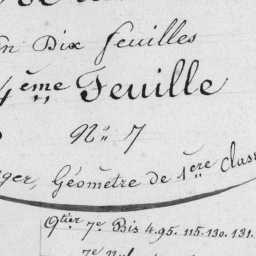 en Dix feuilles
4ème Feuille
Nº 7
Géomètre de 1ère class
9tier 7e Bis 4.95.115.130.131.
7e